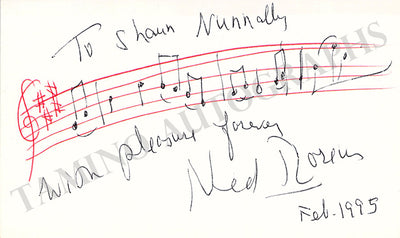 To Shaun Nunnally
TAMINO AUTOGRAPHS
With pleasure forever
Ned Rorem
Feb. 1995